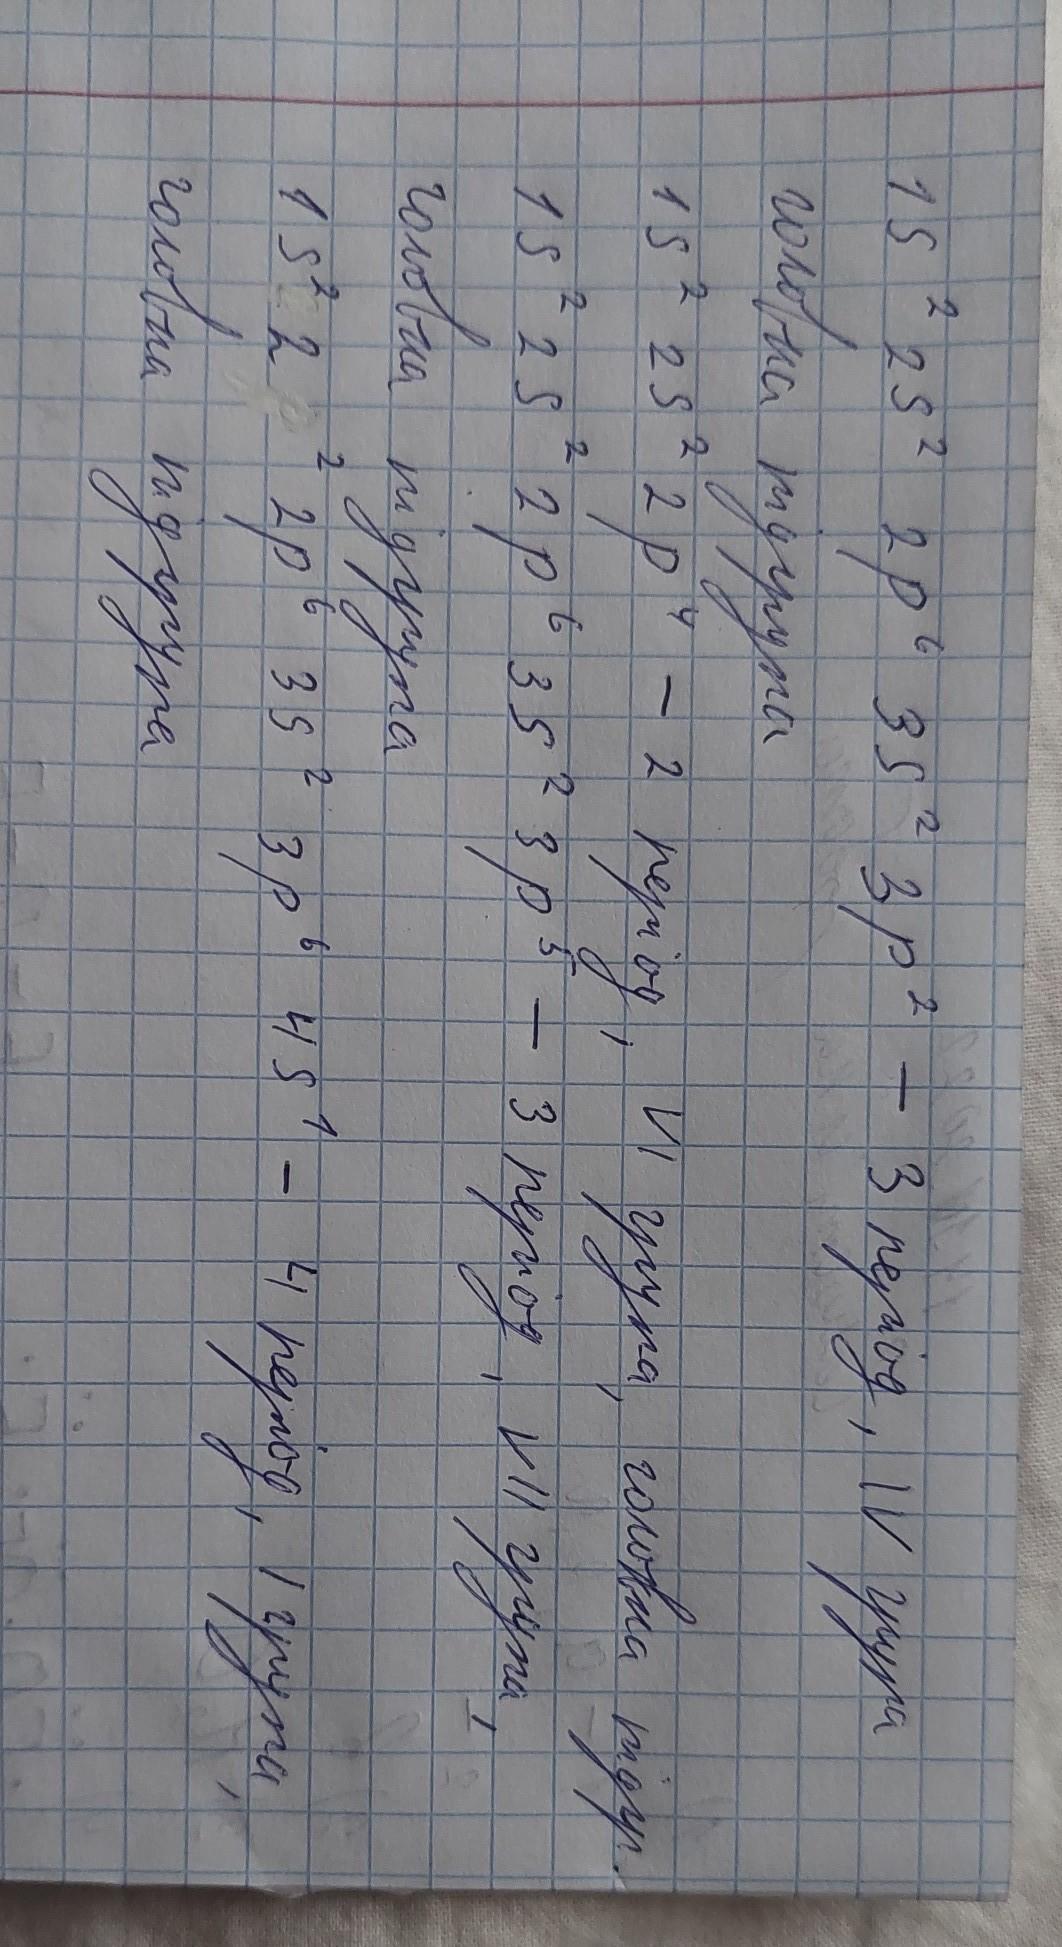 1s² 2s² 2p⁶ 3s² 3p² – 3 період, IV група
головна підгрупа
1s² 2s² 2p⁴ – 2 період, VI група, головна підгр.
1s² 2s² 2p⁶ 3s² 3p⁵ – 3 період, VII група,
головна підгрупа
1s² 2 ² 2p⁶ 3s² 3p⁶ 4s¹ – 4 період, I група,
головна підгрупа